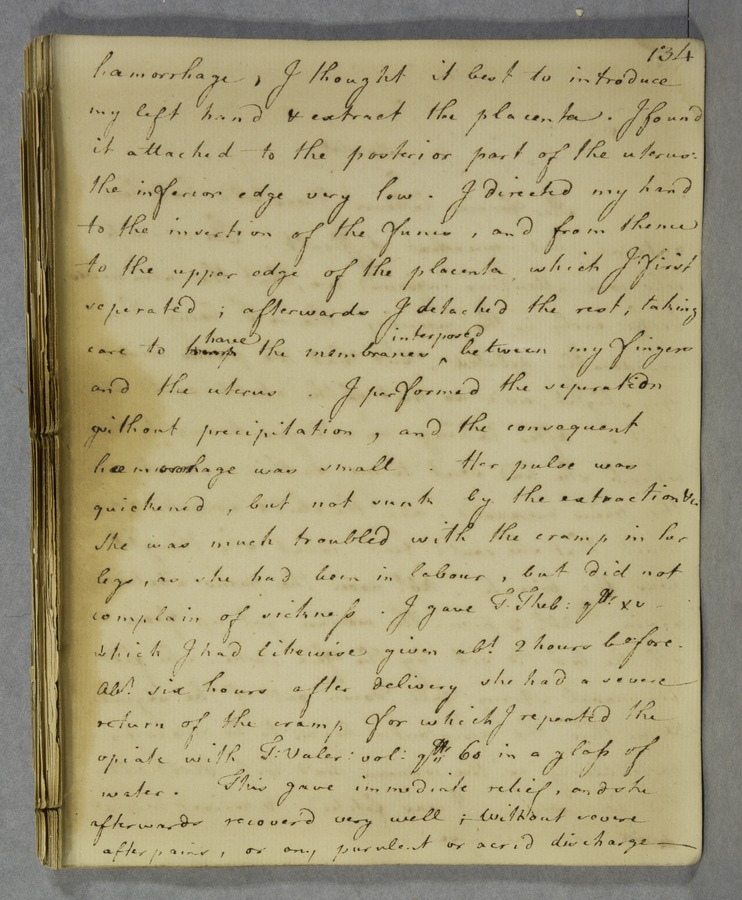 134
hamorrhage, I thought it best to introduce
my left hand & extract the placenta. I found
it attached to the posterior part of the uterus:
the inferior edge very low. I directed my hand
to the insertion of the funis, and from thence
to the upper edge of the placenta, which I first
seperated; afterwards I detached the rest, taking
care to have the membranes interposed between my fingers
and the uterus. I performed the separation
without precipitation, and the consequent
hæmorrhage was small. Her pulse was
quickened, but not sunk by the extraction &c.
She was much troubled with the cramp in her
legs, as she had been in labour, but did not
complain of sickness. I gave T. Theb: gtt: xv
which I had likewise given abt. 2 hours before.
Abt. six hours after delivery she had a severe
return of the cramp for which I repeated the
opiate with T: Valer: vol: gtt: 60 in a glass of
water. This gave immediate relief, and she
afterwards recover'd very well; without severe
afterpains, or any purulent or acrid discharge—